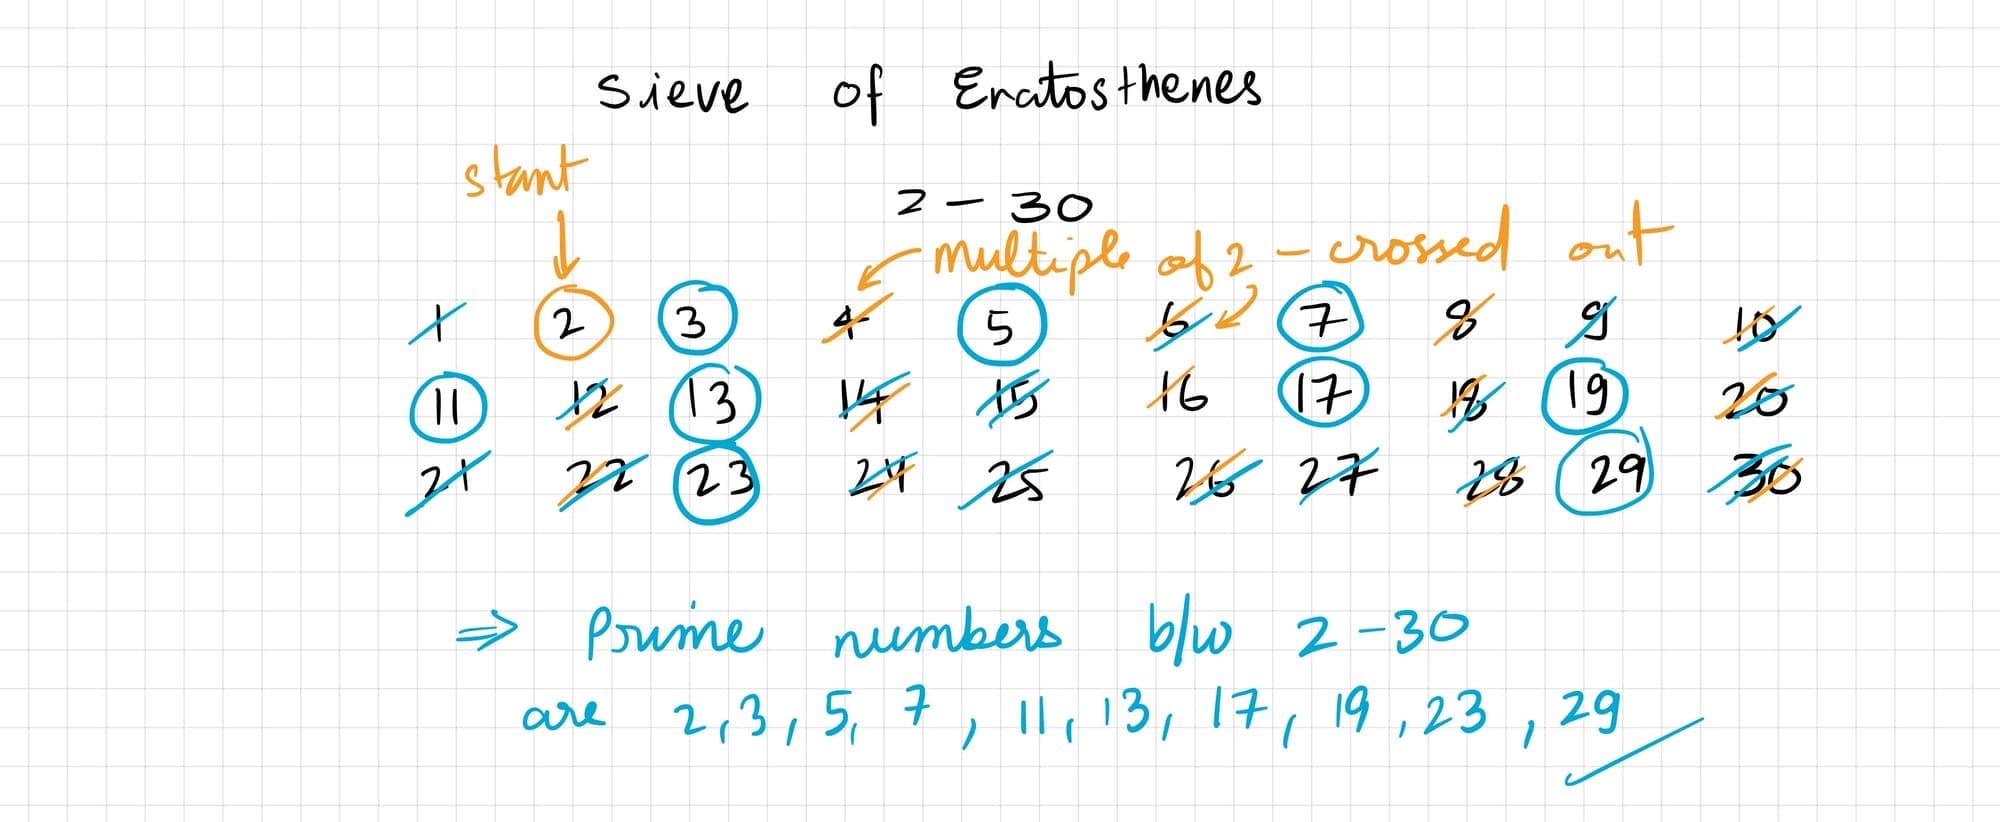 Sieve of Eratosthenes
start
2 - 30
multiple of 2 - crossed out
1 2 3 4 5 6 7 8 9 10
11 12 13 14 15 16 17 18 19 20
21 22 23 24 25 26 27 28 29 30
⇒ Prime numbers b/w 2 - 30
are 2, 3, 5, 7, 11, 13, 17, 19, 23, 29